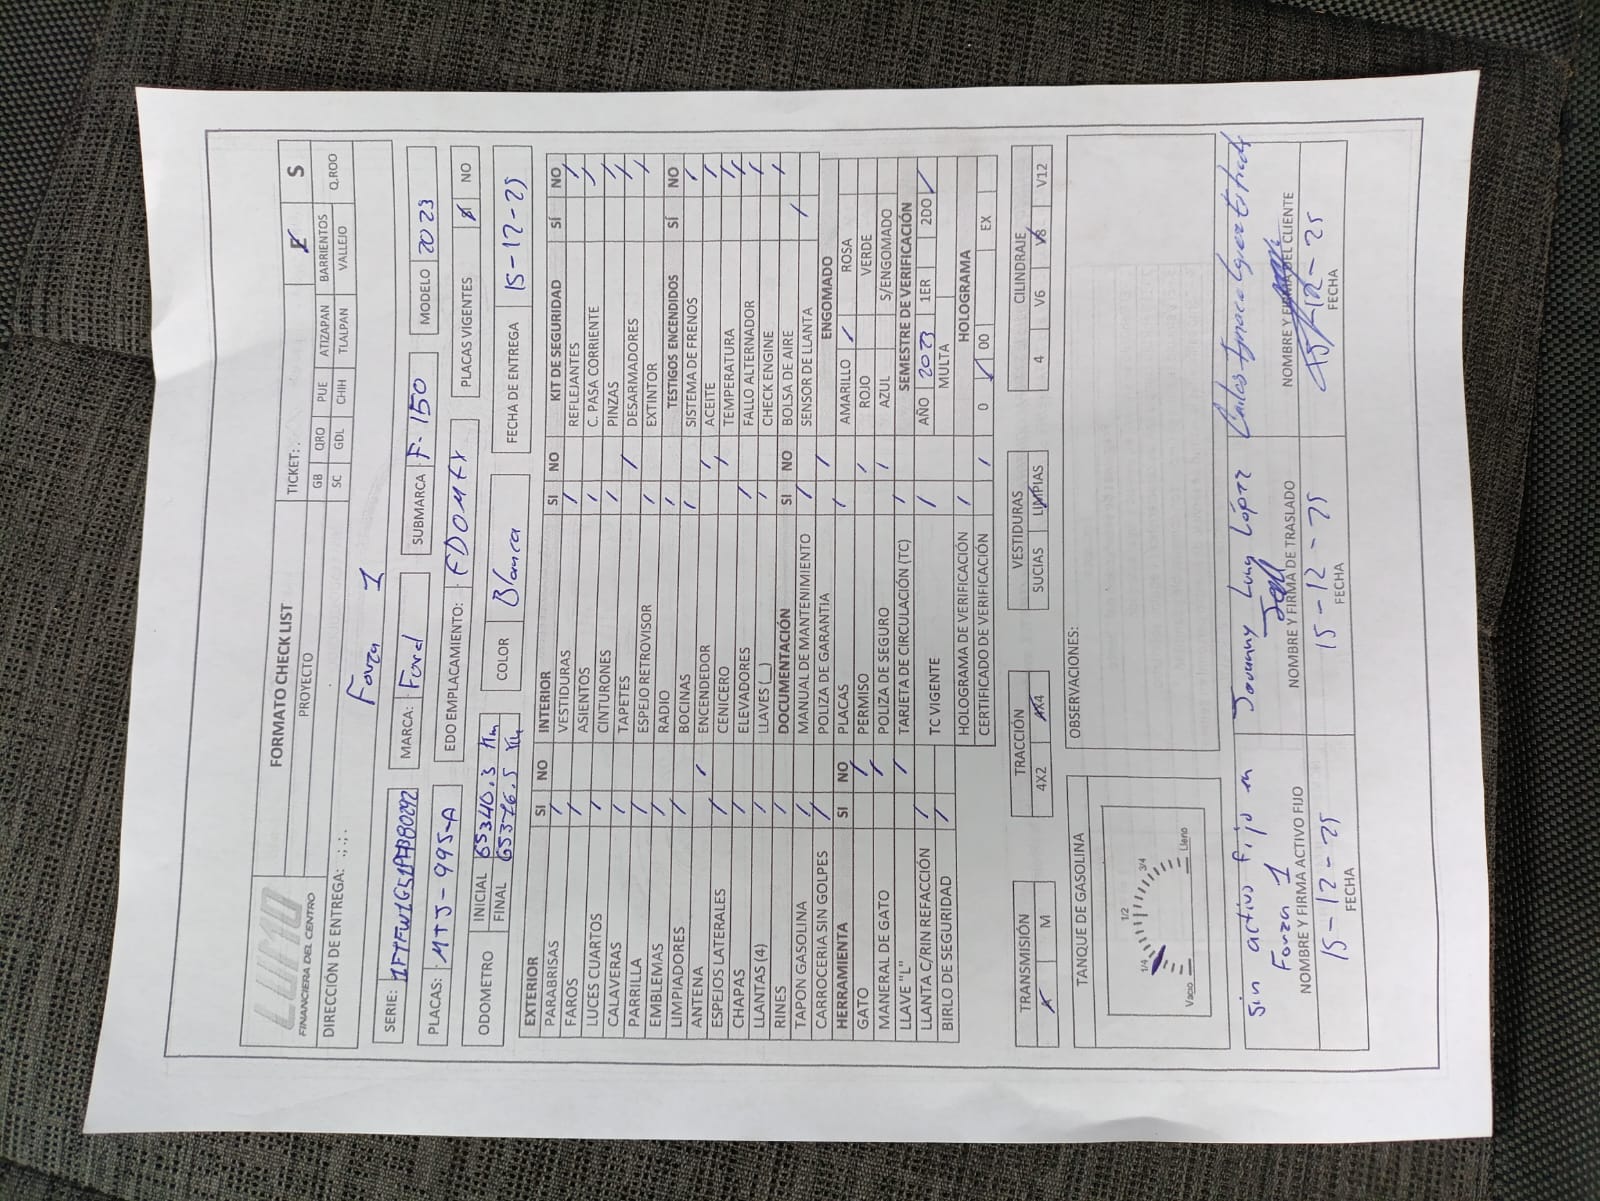 FORMATO CHECK LIST
LUMO
FINANCIERA DEL CENTRO
PROYECTO
TICKET:
E S
GB QRO PUE ATIZAPAN BARRIENTOS
SC GDL CHIH TLALPAN VALLEJO Q.ROO
DIRECCIÓN DE ENTREGA: . ; . ; .
Forza 1
SERIE:
MARCA: Ford
SUBMARCA F-150
MODELO 2023
PLACAS: MTJ-995-A
EDO EMPLACAMIENTO: EDOMEX
PLACAS VIGENTES SÍ NO
ODOMETRO
INICIAL 65340.3 Km
FINAL 65376.5 Km
COLOR Blanca
FECHA DE ENTREGA 15-12-25
EXTERIOR SI NO
PARABRISAS /
FAROS /
LUCES CUARTOS /
CALAVERAS /
PARRILLA /
EMBLEMAS /
LIMPIADORES /
ANTENA /
ESPEJOS LATERALES /
CHAPAS /
LLANTAS (4) /
RINES /
TAPON GASOLINA /
CARROCERIA SIN GOLPES /
HERRAMIENTA SI NO
GATO /
MANERAL DE GATO /
LLAVE "L" /
LLANTA C/RIN REFACCIÓN /
BIRLO DE SEGURIDAD /
INTERIOR SI NO
VESTIDURAS /
ASIENTOS /
CINTURONES /
TAPETES /
ESPEJO RETROVISOR /
RADIO /
BOCINAS /
ENCENDEDOR /
CENICERO /
ELEVADORES /
LLAVES (__) /
DOCUMENTACIÓN SI NO
MANUAL DE MANTENIMIENTO /
POLIZA DE GARANTIA /
PLACAS /
PERMISO /
POLIZA DE SEGURO /
TARJETA DE CIRCULACIÓN (TC) /
TC VIGENTE /
HOLOGRAMA DE VERIFICACIÓN /
CERTIFICADO DE VERIFICACIÓN /
KIT DE SEGURIDAD SÍ NO
REFLEJANTES /
C. PASA CORRIENTE /
PINZAS /
DESARMADORES /
EXTINTOR /
TESTIGOS ENCENDIDOS SÍ NO
SISTEMA DE FRENOS /
ACEITE /
TEMPERATURA /
FALLO ALTERNADOR /
CHECK ENGINE /
BOLSA DE AIRE /
SENSOR DE LLANTA /
ENGOMADO
AMARILLO / ROSA
ROJO VERDE
AZUL S/ENGOMADO
SEMESTRE DE VERIFICACIÓN
AÑO 2023 1ER 2DO /
MULTA
HOLOGRAMA
0 / 00 EX
TRANSMISIÓN
A M
TRACCIÓN
4X2 4X4
VESTIDURAS
SUCIAS LIMPIAS
CILINDRAJE
4 V6 V8 V12
TANQUE DE GASOLINA
Vacio 1/4 1/2 3/4 Lleno
OBSERVACIONES:
Sin activo fijo en
Forza 1
NOMBRE Y FIRMA ACTIVO FIJO
15-12-25
FECHA
López
NOMBRE Y FIRMA DE TRASLADO
15-12-25
FECHA
Carlos
NOMBRE Y FIRMA DEL CLIENTE
FECHA